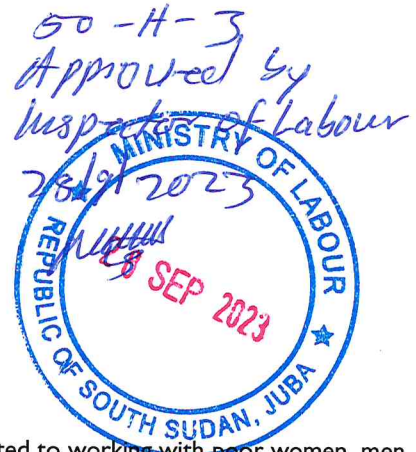 50-H-3
Approved by
Inspector of Labour
28/9/2023
MINISTRY OF LABOUR
28 SEP 2023
REPUBLIC OF SOUTH SUDAN, JUBA
ted to working with poor women, men